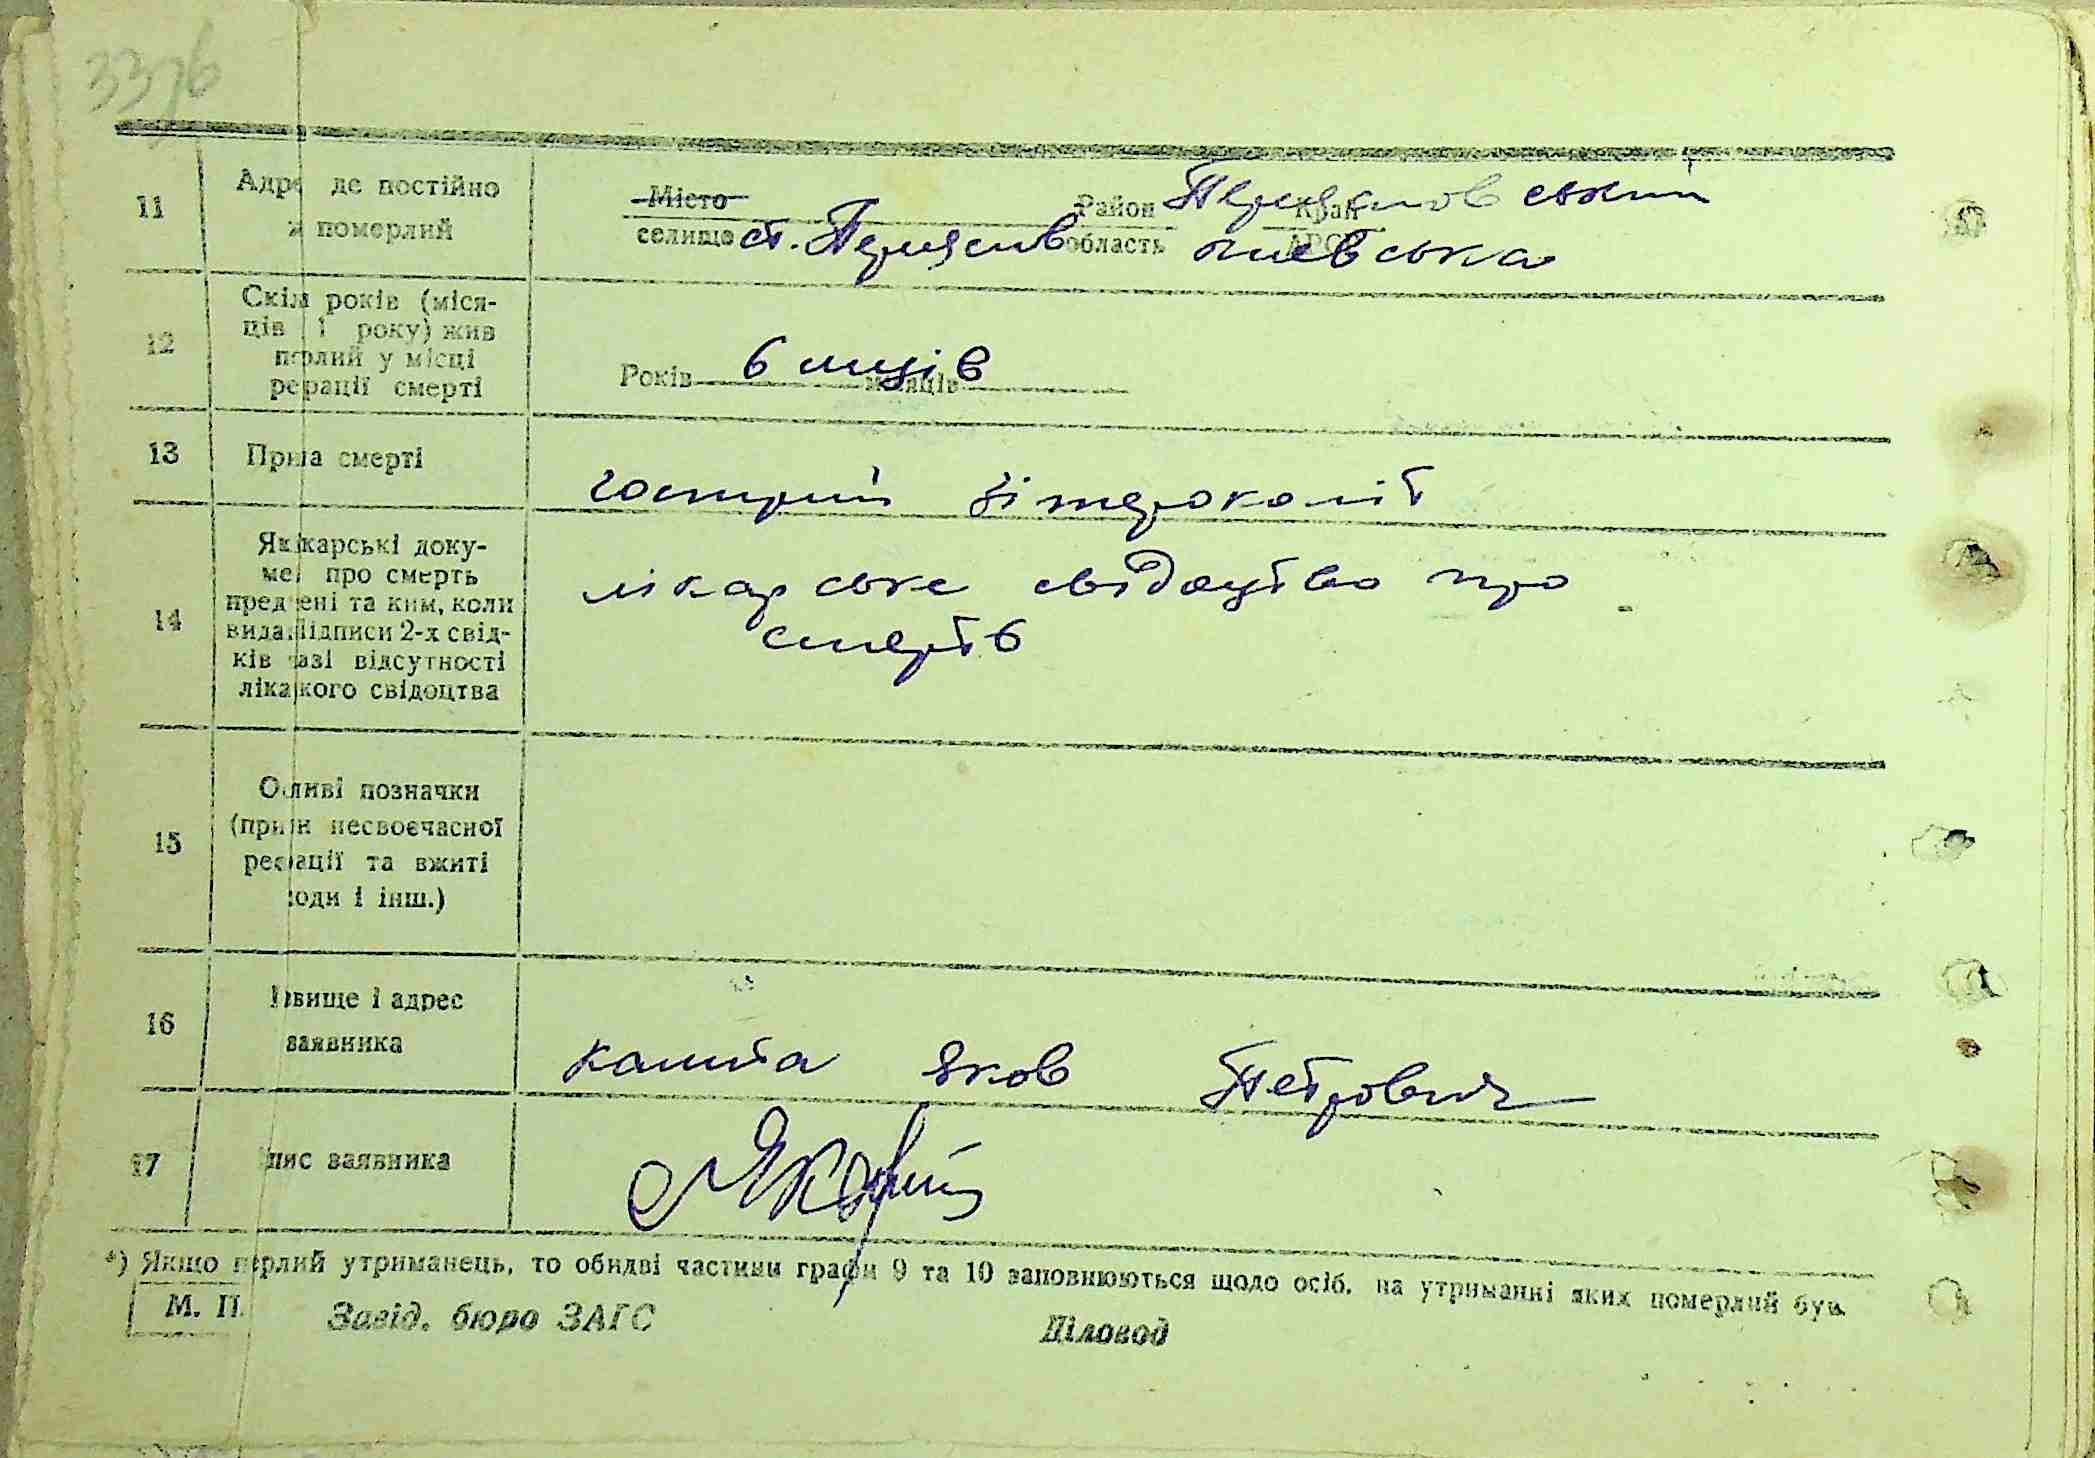 33зб
11
Адре де постійно
ж померлий
Місто
селище ст. Переяслів
Район Переяславський
область Київська
Край
АРСР
12
Скіл років (міся-
ців 1 року) жив
перлий у місці
рерації смерті
Років 6 місяців
місяців
13
Прина смерті
гострий ентероколіт
14
Які карські доку-
мен про смерть
пред'ені та ким, коли
вида. Підписи 2-х свід-
ків разі відсутності
лікакого свідоцтва
лікарське свідоцтво про
смерть
15
Осливі позначки
(причин несвоєчасної
реєрації та вжиті
ходи і інш.)
16
Ізвище і адрес
заявника
Калита Яков Петрович
17
пис заявника
*) Якщо перлий утриманець, то обидві частини графи 9 та 10 заповнюються щодо осіб, на утриманні яких померлий був.
М. П.
Завід. бюро ЗАГС
Діловод